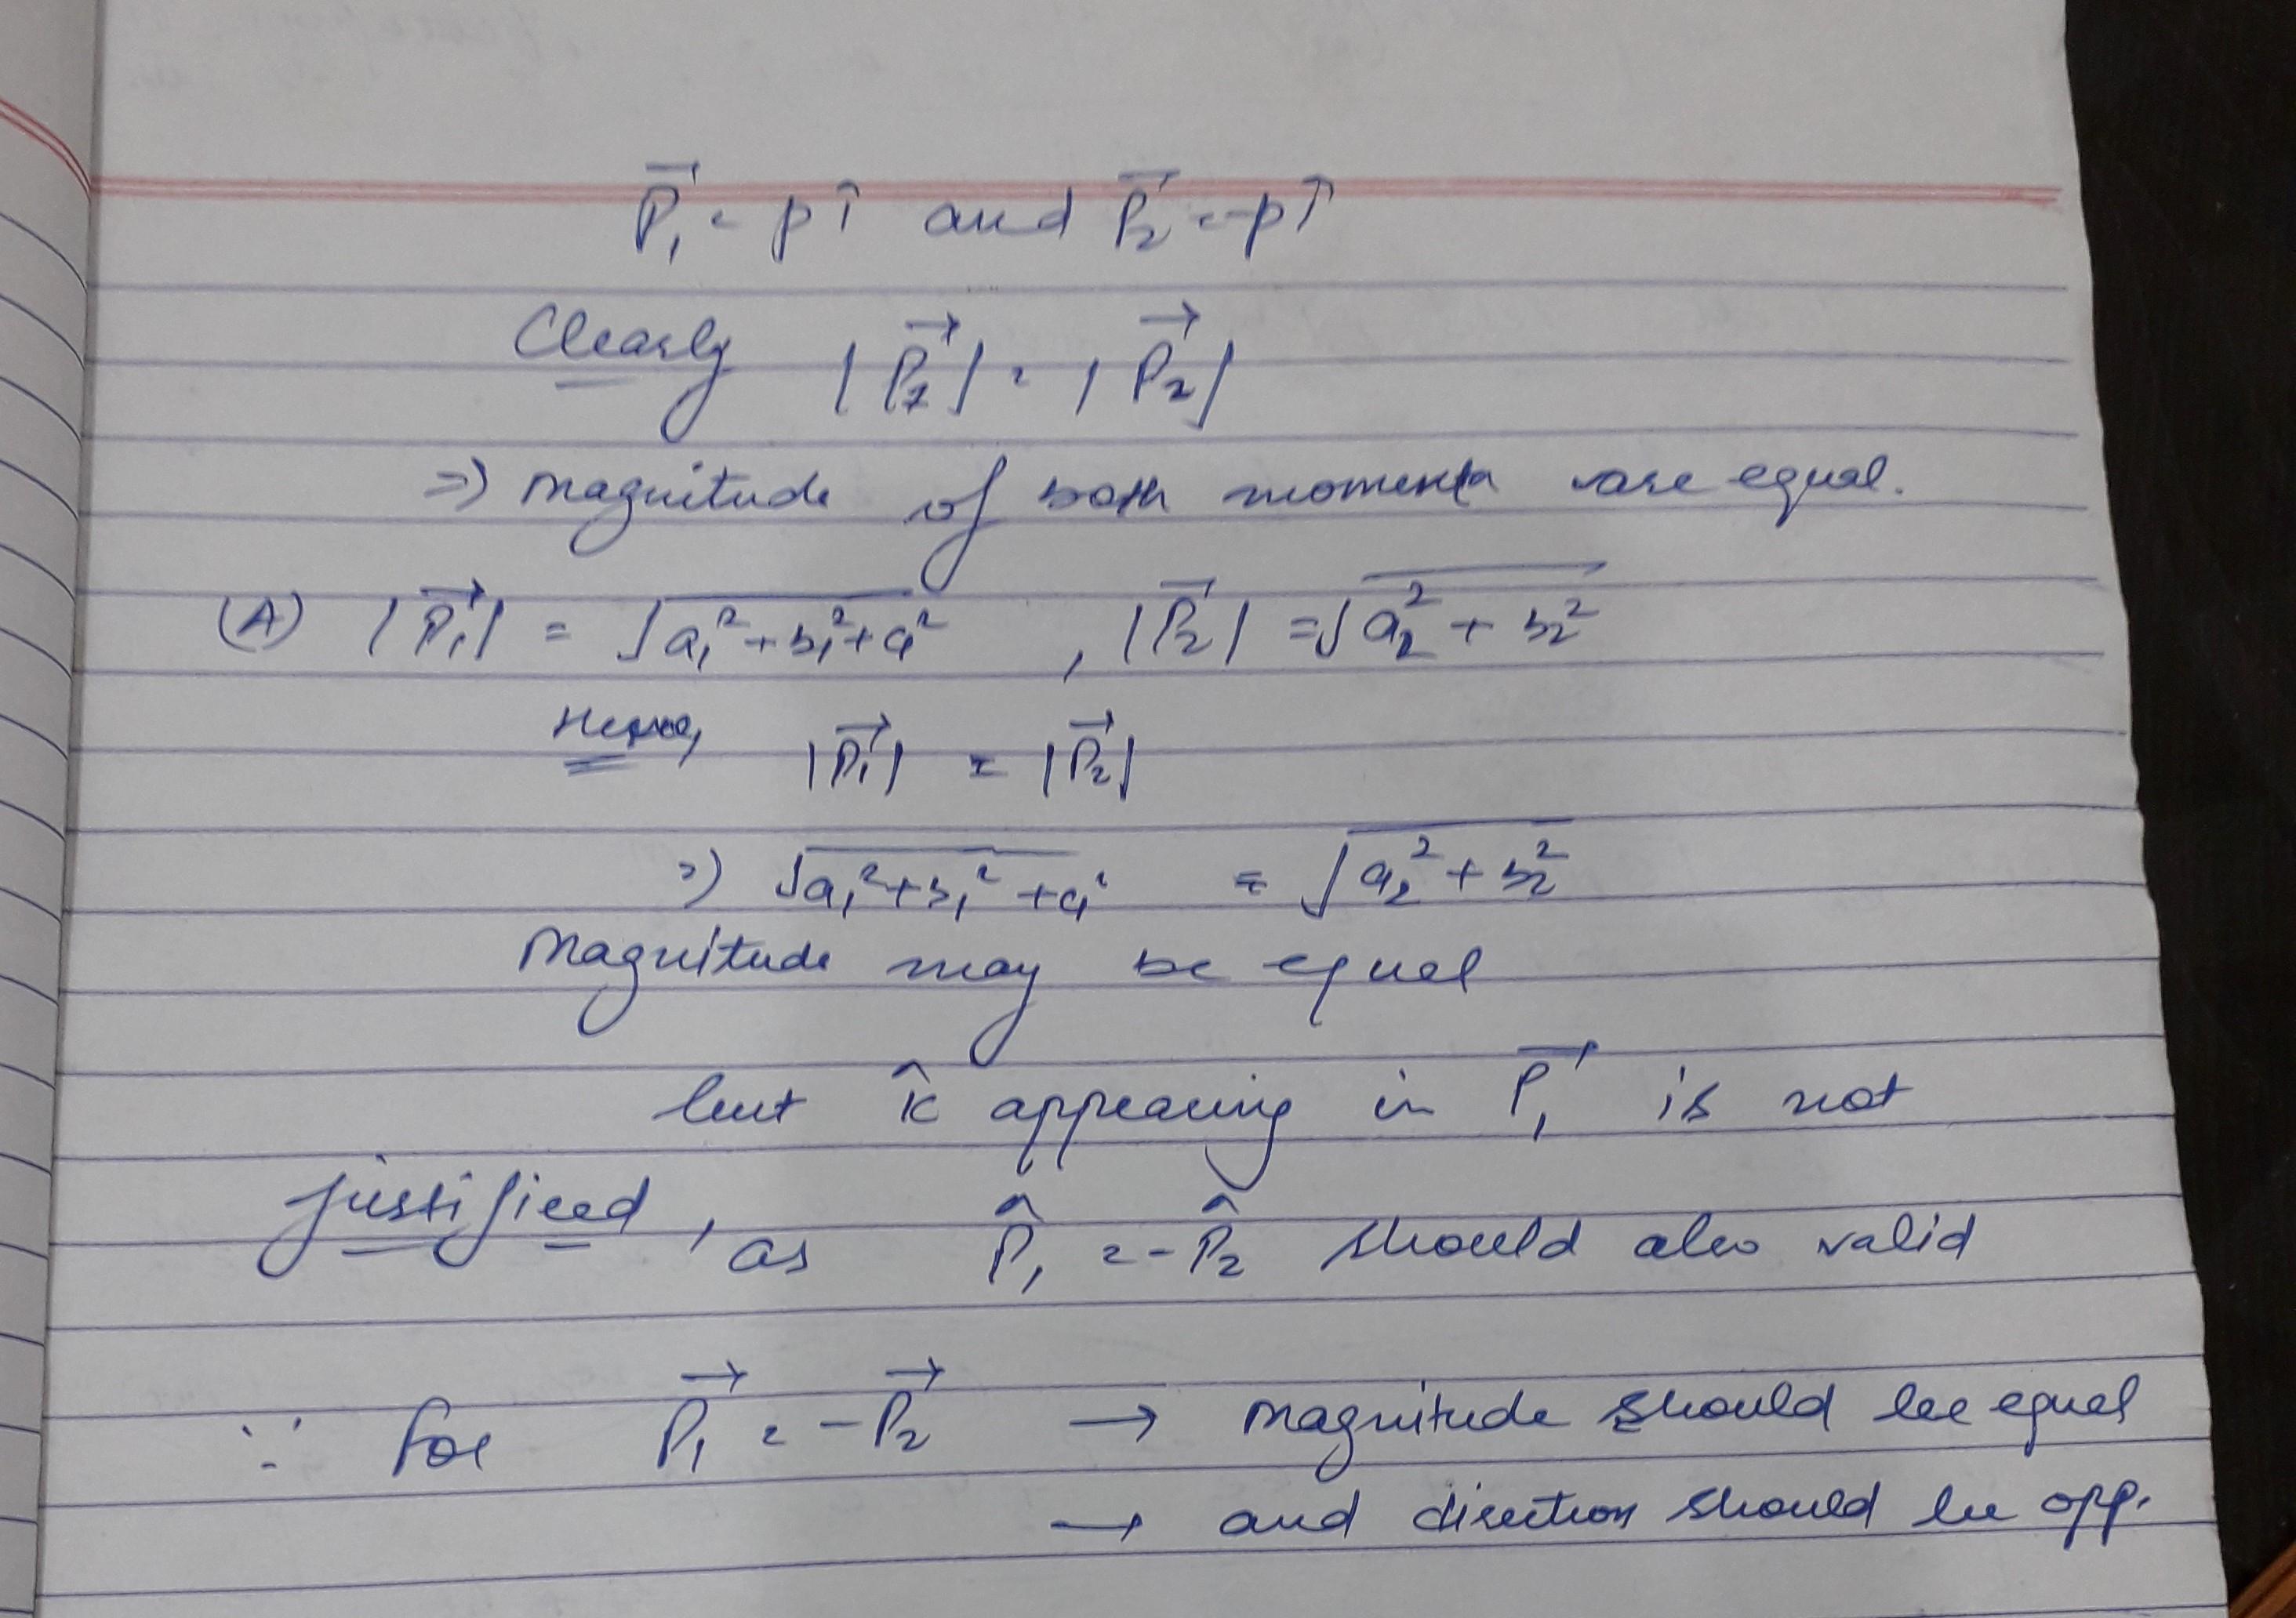 P⃗₁ = pî and P⃗₂ = -pî
Clearly |P⃗₁| = |P⃗₂|
⇒) magnitude of both momenta are equal.
(A) |P⃗₁| = √(a₁² + b₁² + c₁²) , |P⃗₂| = √(a₂² + b₂²)
Hence, |P⃗₁| = |P⃗₂|
⇒) √(a₁² + b₁² + c₁²) = √(a₂² + b₂²)
Magnitude may be equal
but k̂ appearing in P⃗₁ is not
justified, as P̂₁ = -P̂₂ should also valid
∵ for P⃗₁ = -P⃗₂ → magnitude should be equal
→ and direction should be opp.